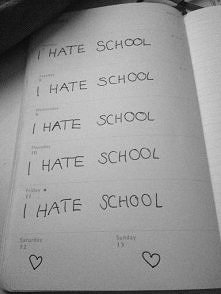 I HATE SCHOOL
Tuesday
I HATE SCHOOL
Wednesday
9
I HATE SCHOOL
Thursday
10
I HATE SCHOOL
Friday
11
I HATE SCHOOL
Saturday Sunday
12 13